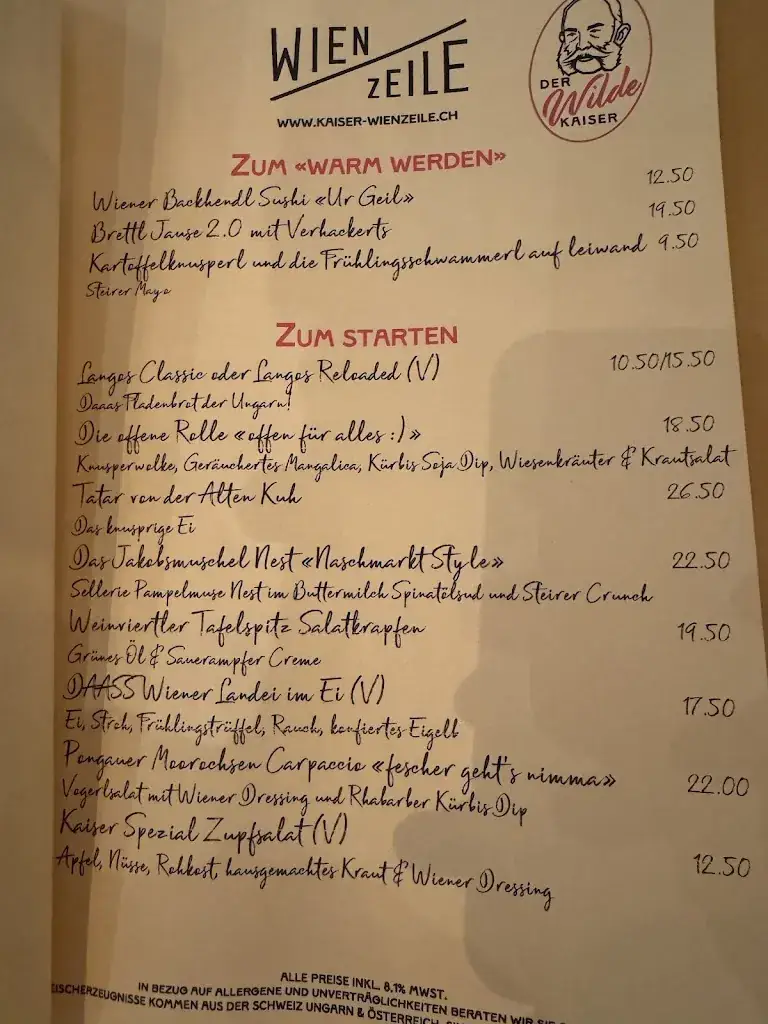 WIEN
ZEILE
WWW.KAISER-WIENZEILE.CH
DER
Wilde
KAISER
ZUM «WARM WERDEN»
Wiener Backhendl Sushi «Ur Geil» 12.50
Brettl Jause 2.0 mit Verhackerts 19.50
Kartoffelknusperl und die Frühlingsschwammerl auf leiwand 9.50
Steirer Mayo
ZUM STARTEN
Langos Classic oder Langos Reloaded (V) 10.50/15.50
Daaas Fladenbrot der Ungarn!
Die offene Rolle «offen für alles :)» 18.50
Knusperwolke, Geräuchertes Mangalica, Kürbis Soja Dip, Wiesenkräuter & Krautsalat
Tatar von der Alten Kuh 26.50
Das knusprige Ei
Das Jakobsmuschel Nest «Naschmarkt Style» 22.50
Sellerie Pampelmuse Nest im Buttermilch Spinatölsud und Steirer Crunch
Weinviertler Tafelspitz Salatkrapfen 19.50
Grünes Öl & Sauerampfer Creme
DAASS Wiener Landei im Ei (V) 17.50
Ei, Stroh, Frühlingstrüffel, Rauch, konfiertes Eigelb
Pongauer Moorochsen Carpaccio «fescher geht's nimma» 22.00
Vogerlsalat mit Wiener Dressing und Rhabarber Kürbis Dip
Kaiser Spezial Zupfsalat (V) 12.50
Apfel, Nüsse, Rohkost, hausgemachtes Kraut & Wiener Dressing
ALLE PREISE INKL. 8,1% MWST.
IN BEZUG AUF ALLERGENE UND UNVERTRÄGLICHKEITEN BERATEN WIR SIE
EISCHERZEUGNISSE KOMMEN AUS DER SCHWEIZ UNGARN & ÖSTERREICH.